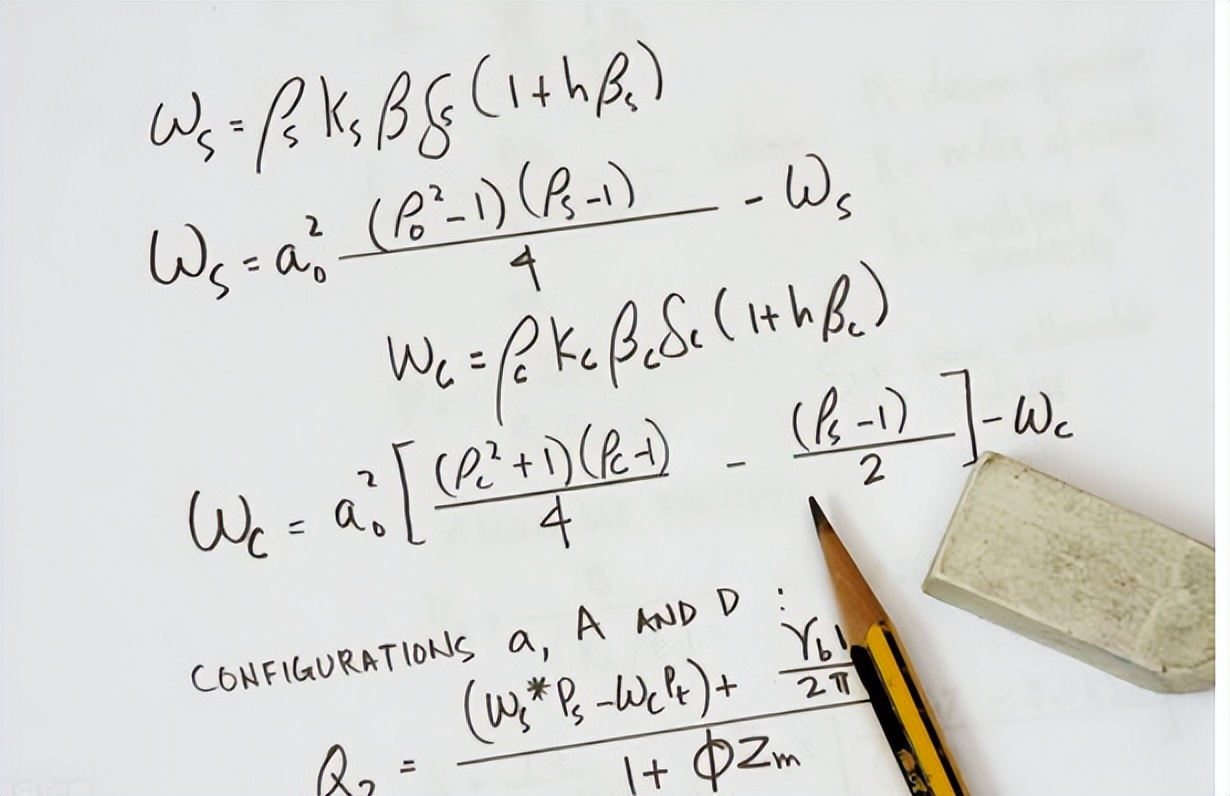 ω_s = ρ_s k_s β δ_s (1 + h β_s)
ω_s = a_0^2 (ρ_0^2 - 1)(ρ_s - 1) / 4 - ω_s
ω_c = ρ_c k_c β_c δ_c (1 + h β_c)
ω_c = a_0^2 [ (ρ_c^2 + 1)(ρ_c - 1) / 4 - (ρ_s - 1) / 2 ] - ω_c
CONFIGURATIONS a, A AND D :
(ω_s * P_s - ω_c P_t) + γ_b / 2π
Q_2 = / 1 + φ Z_m